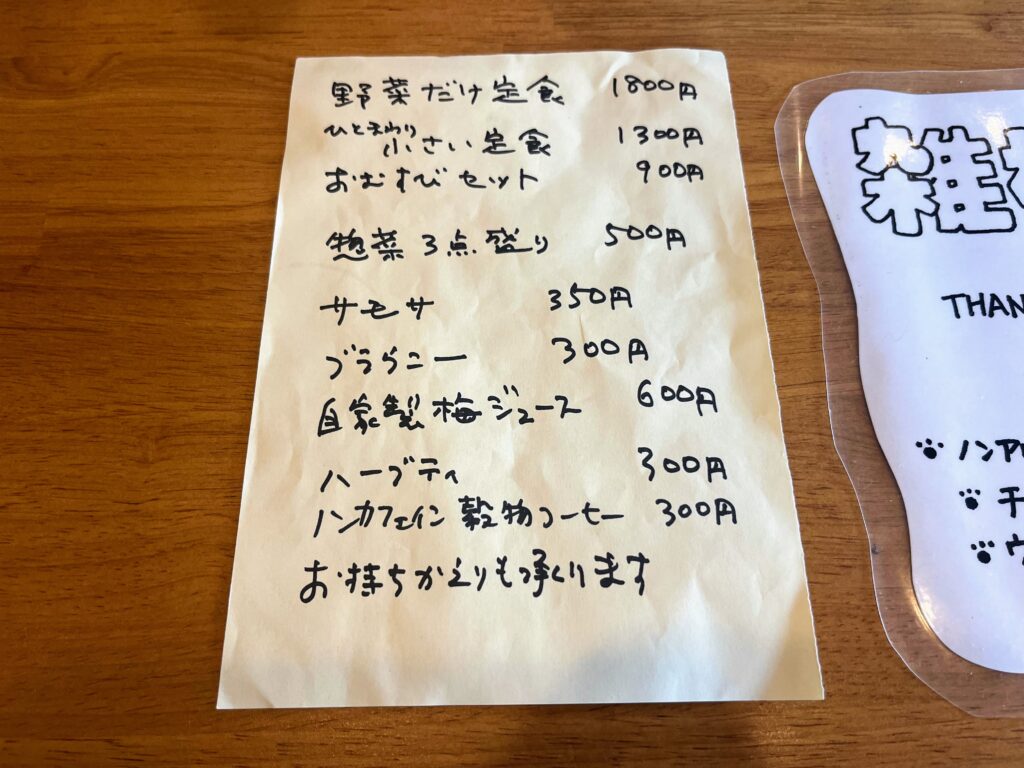 野菜だけ定食 1800円
ひとまわり小さい定食 1300円
おむすびセット 900円
惣菜3点盛り 500円
サモサ 350円
ブラウニー 300円
自家製梅ジュース 600円
ハーブティ 300円
ノンカフェイン穀物コーヒー 300円
お持ちかえりも承ります
雑
THAN
ノンアル
干
ウ